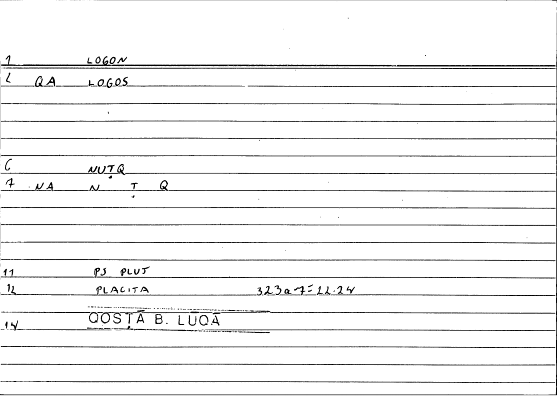 1 LOGON
2 QA LOGOS
6 NUṬQ
7 NA N Ṭ Q
11 PS PLUT
12 PLACITA 323a7=22.24
14 QOSṬĀ B. LUQĀ